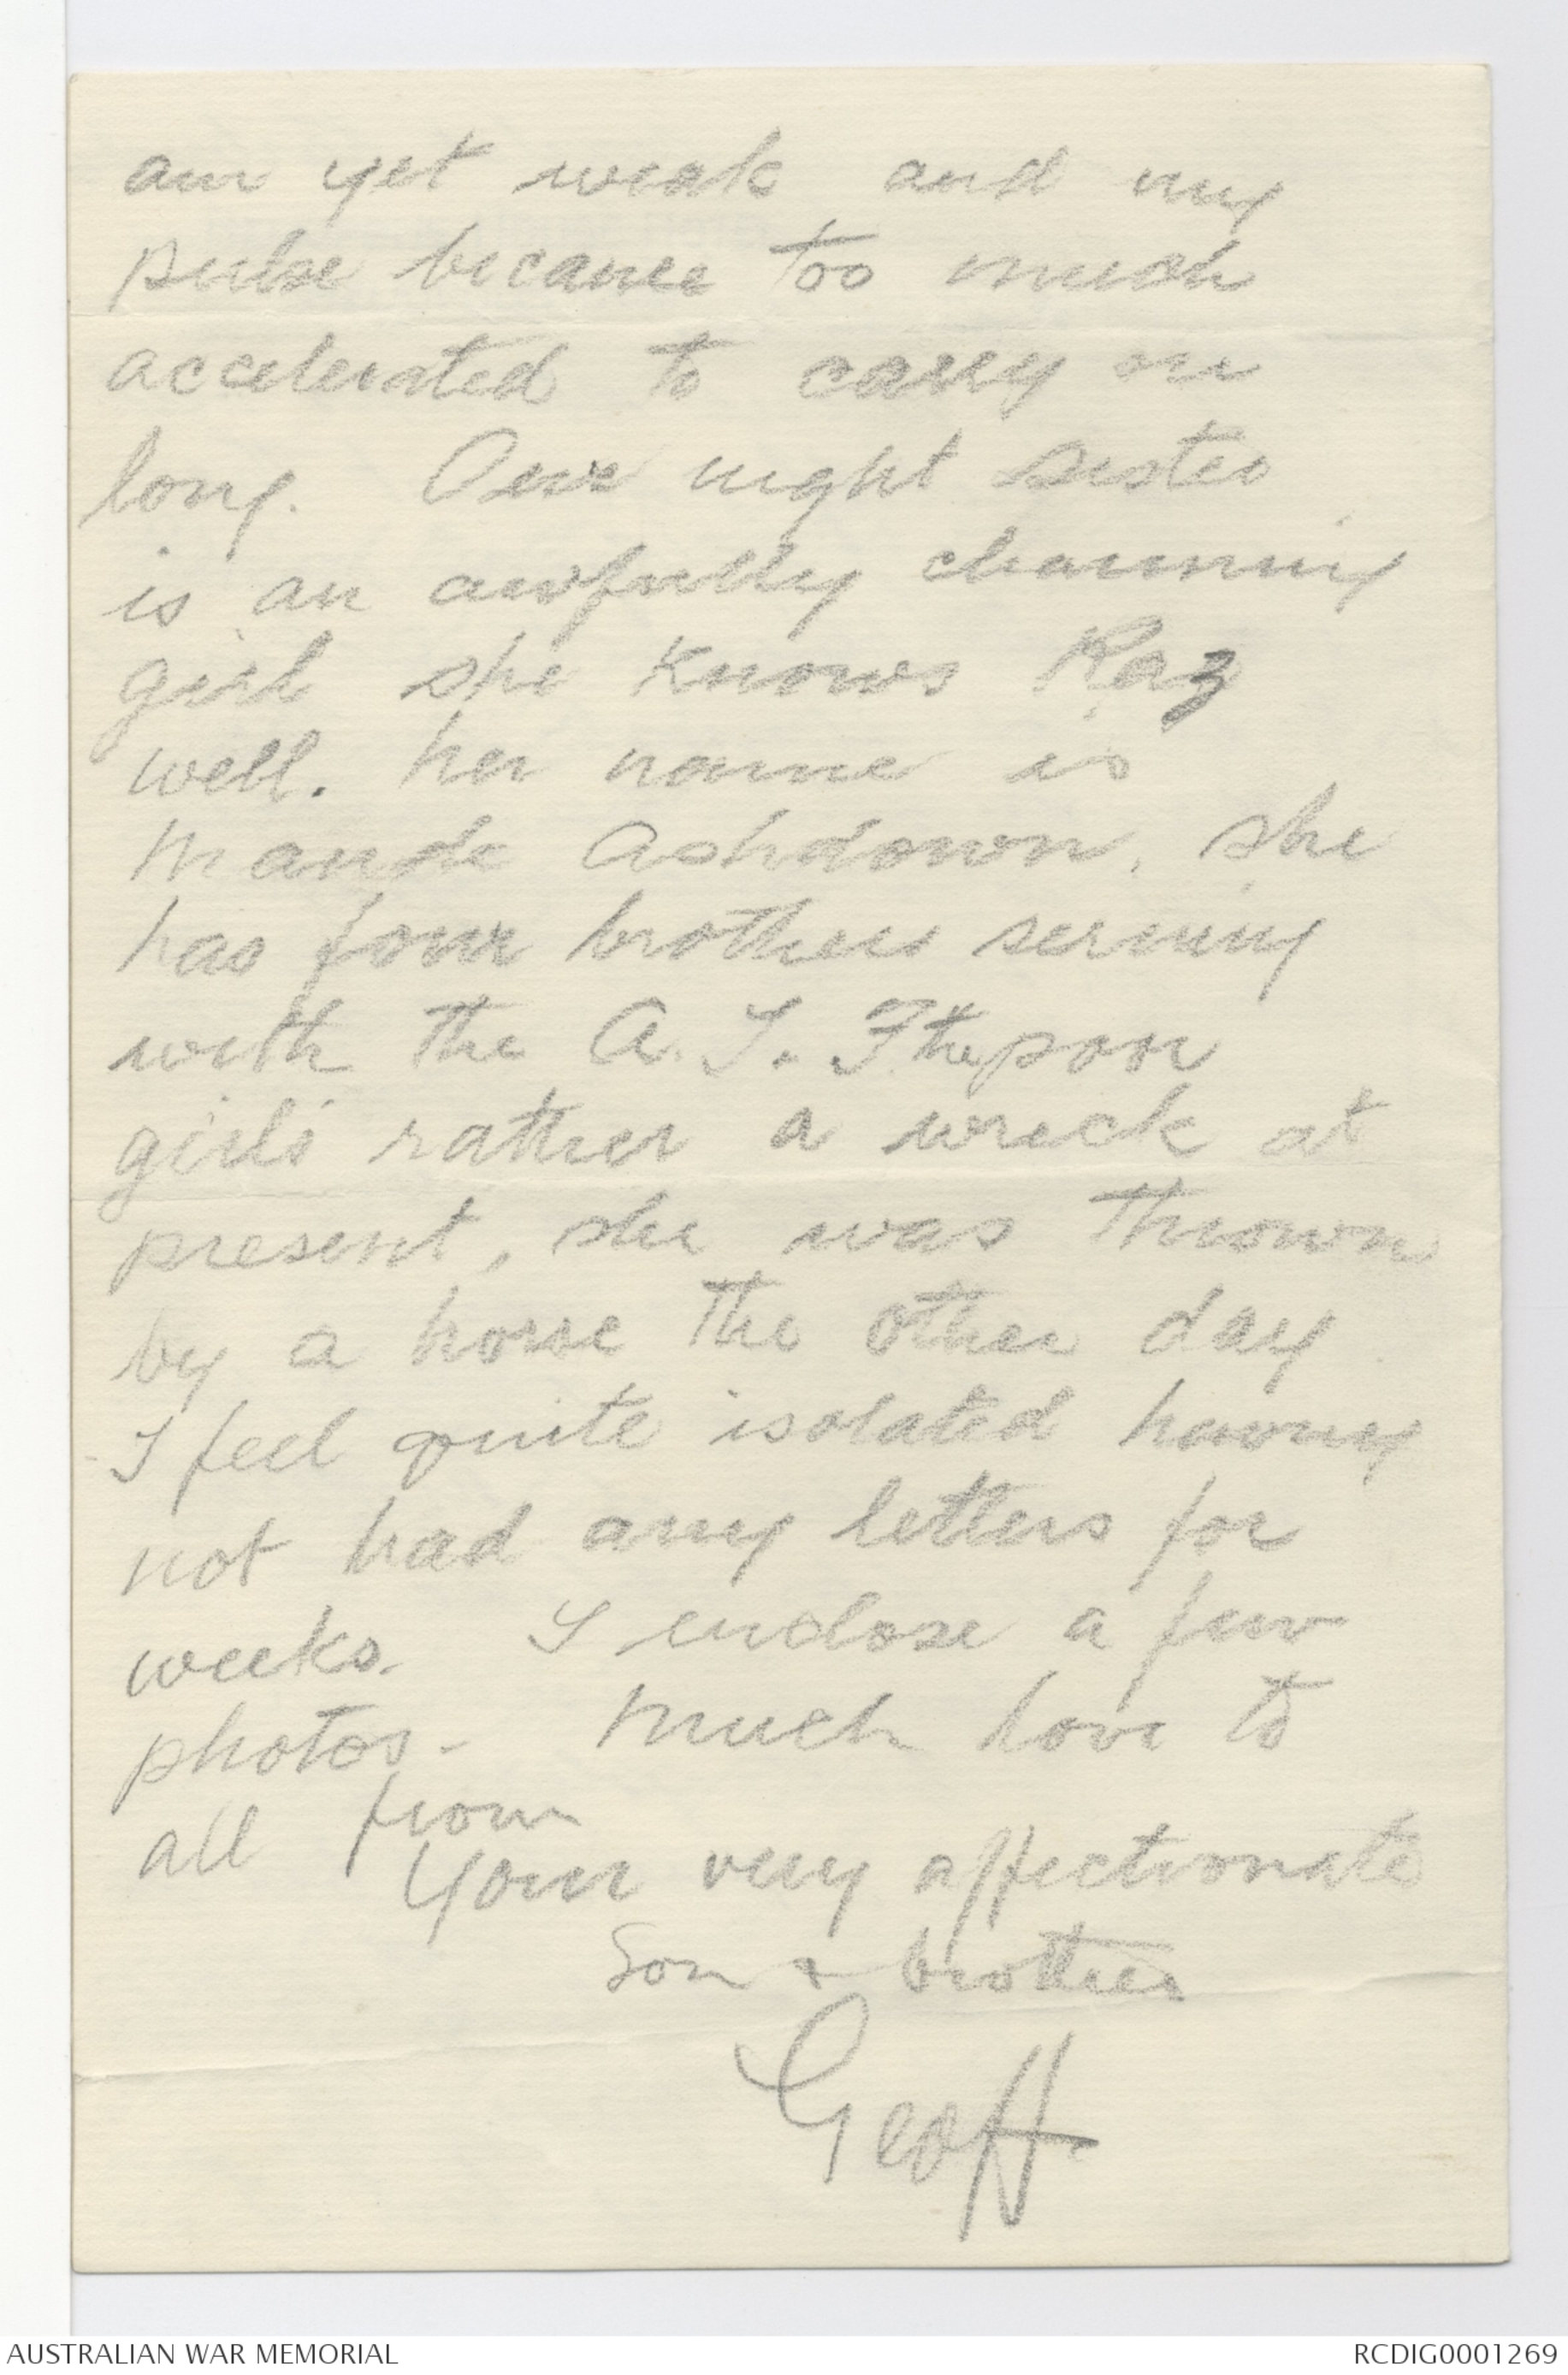 am yet weak and my
pulse became too much
accelerated to carry on
long. Our night sister
is an awfully charming
girl she knows Raz
well. her name is
Maude Ashdown, she
has four brothers serving
with the A. I. F the poor
girls rather a wreck at
present, she was thrown
by a horse the other day
I feel quite isolated having
not had any letters for
weeks. I enclose a few
photos - Much love to
all from
Your very affectionate
Son & brother
Geoff.
AUSTRALIAN WAR MEMORIAL
RCDIG0001269